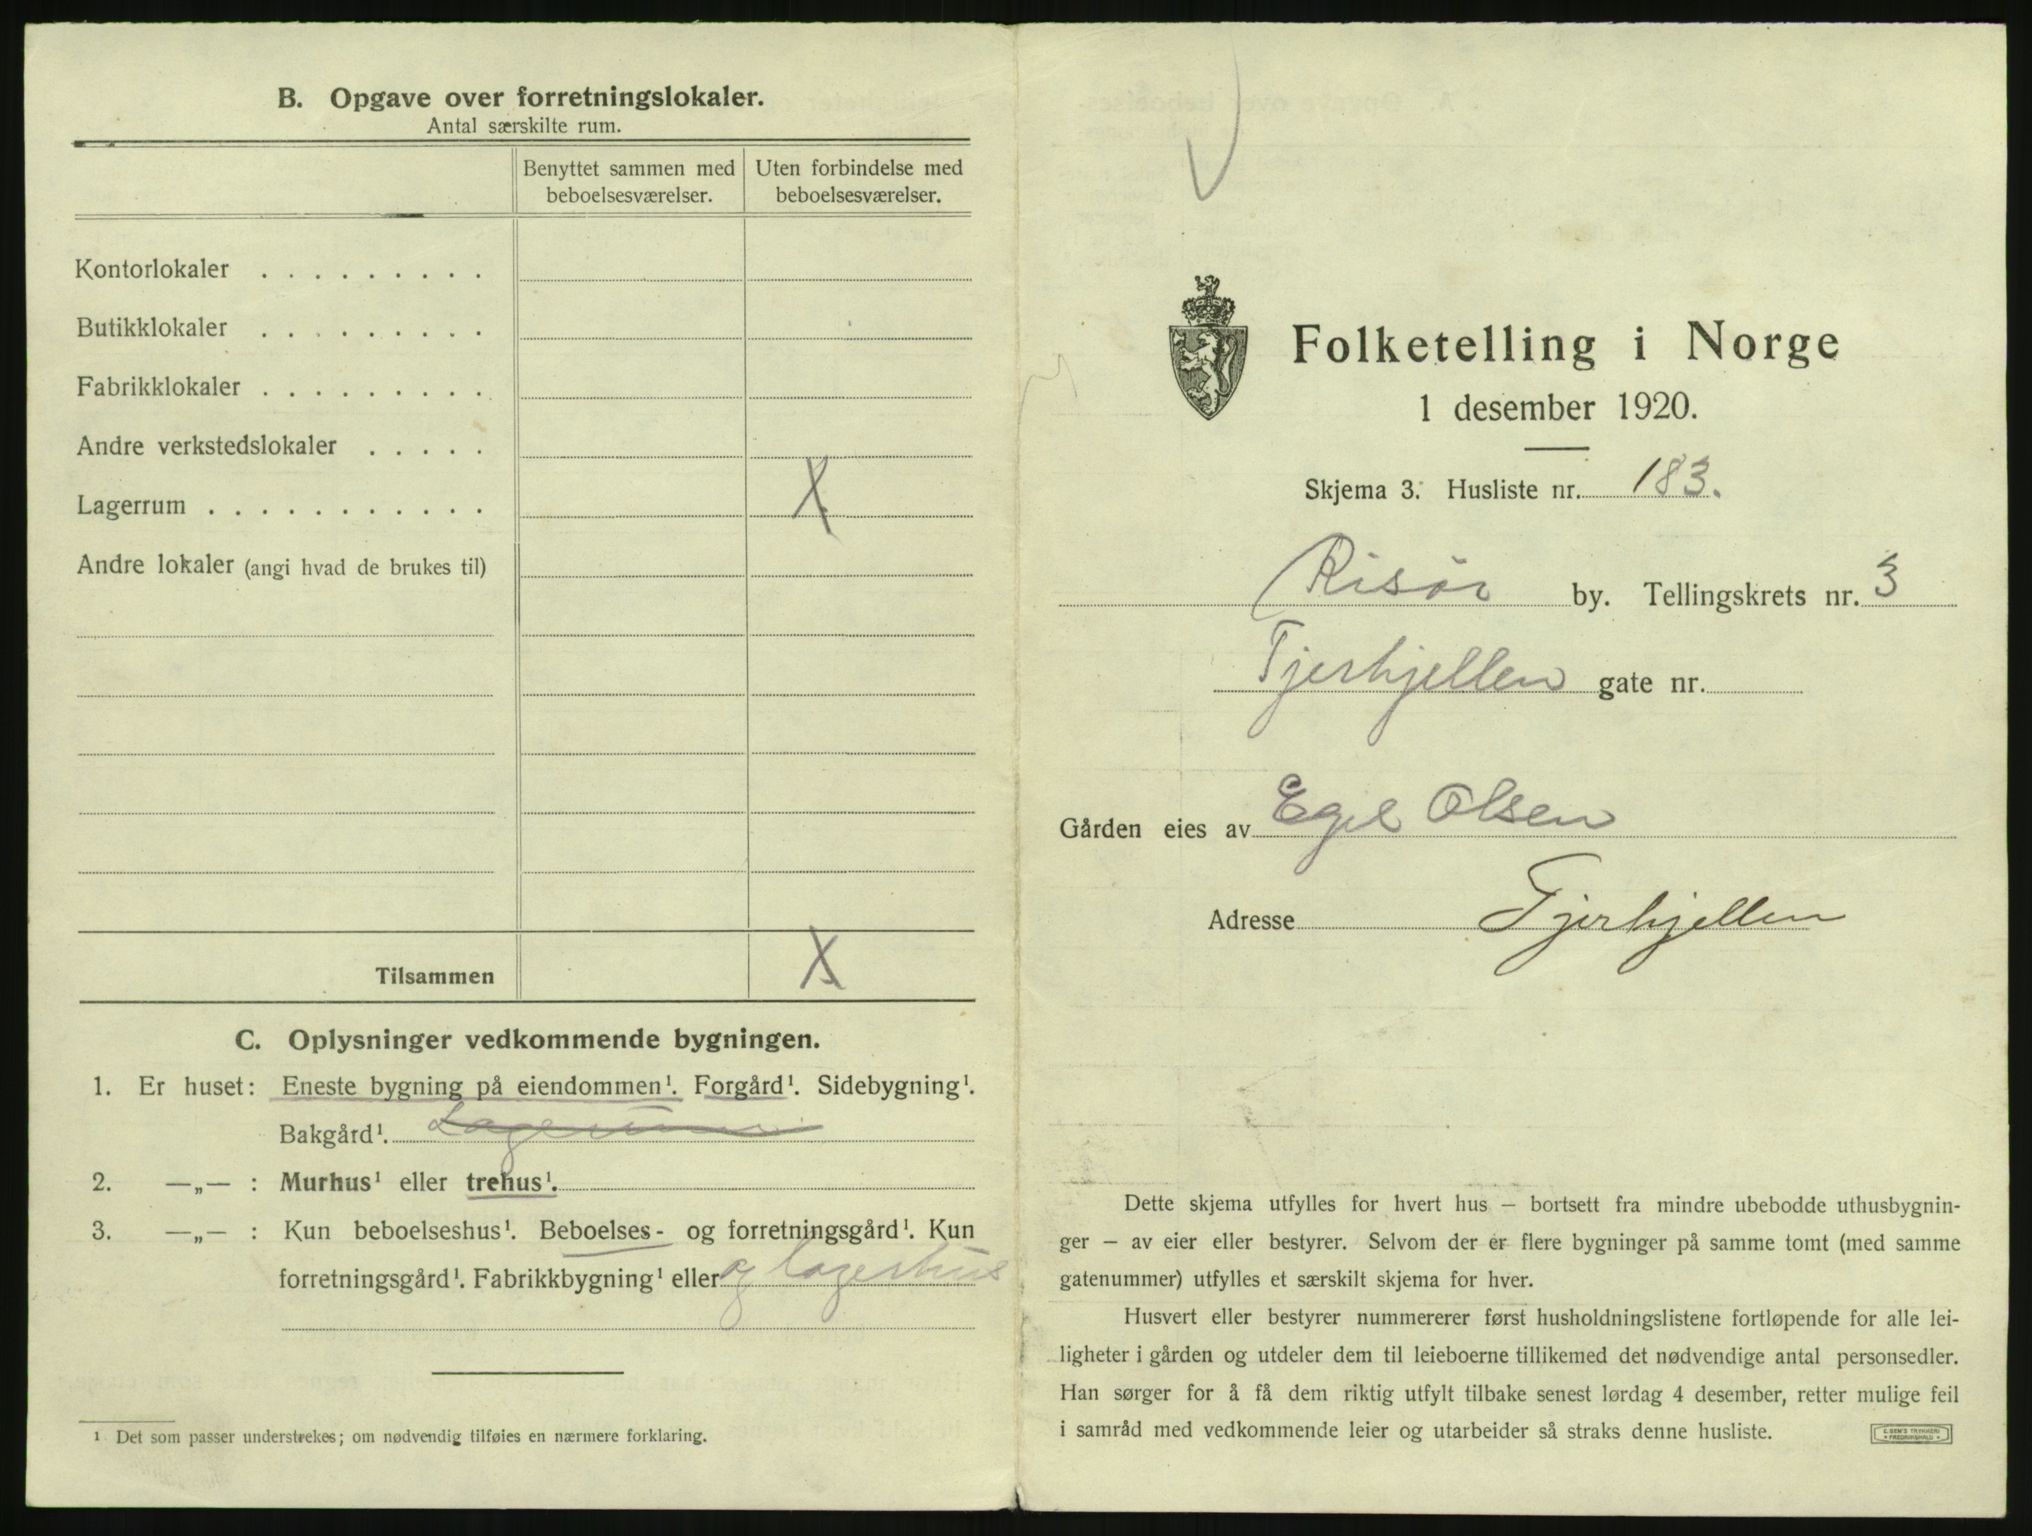 B. Opgave over forretningslokaler.
Antal særskilte rum.
Benyttet sammen med beboelsesværelser.
Uten forbindelse med beboelsesværelser.
Kontorlokaler . . . . . . . . .
Butikklokaler . . . . . . . . .
Fabrikklokaler . . . . . . . . .
Andre verkstedslokaler . . . . .
Lagerrum . . . . . . . . . . . X
Andre lokaler (angi hvad de brukes til)
Tilsammen X
C. Oplysninger vedkommende bygningen.
1. Er huset: Eneste bygning på eiendommen¹. Forgård¹. Sidebygning¹.
Bakgård¹.
2. —„— : Murhus¹ eller trehus¹.
3. —„— : Kun beboelseshus¹. Beboelses- og forretningsgård¹. Kun
forretningsgård¹. Fabrikkbygning¹ eller og lagerhus
¹ Det som passer understrekes; om nødvendig tilføies en nærmere forklaring.
Folketelling i Norge
1 desember 1920.
Skjema 3. Husliste nr. 183.
Risør by. Tellingskrets nr. 3
Tjerhjellen gate nr.
Gården eies av Egel Olsen
Adresse Tjerhjellen
Dette skjema utfylles for hvert hus – bortsett fra mindre ubebodde uthusbygnin-
ger – av eier eller bestyrer. Selvom der er flere bygninger på samme tomt (med samme
gatenummer) utfylles et særskilt skjema for hver.
Husvert eller bestyrer nummererer først husholdningslistene fortløpende for alle lei-
ligheter i gården og utdeler dem til leieboerne tillikemed det nødvendige antal personsedler.
Han sørger for å få dem riktig utfylt tilbake senest lørdag 4 desember, retter mulige feil
i samråd med vedkommende leier og utarbeider så straks denne husliste.